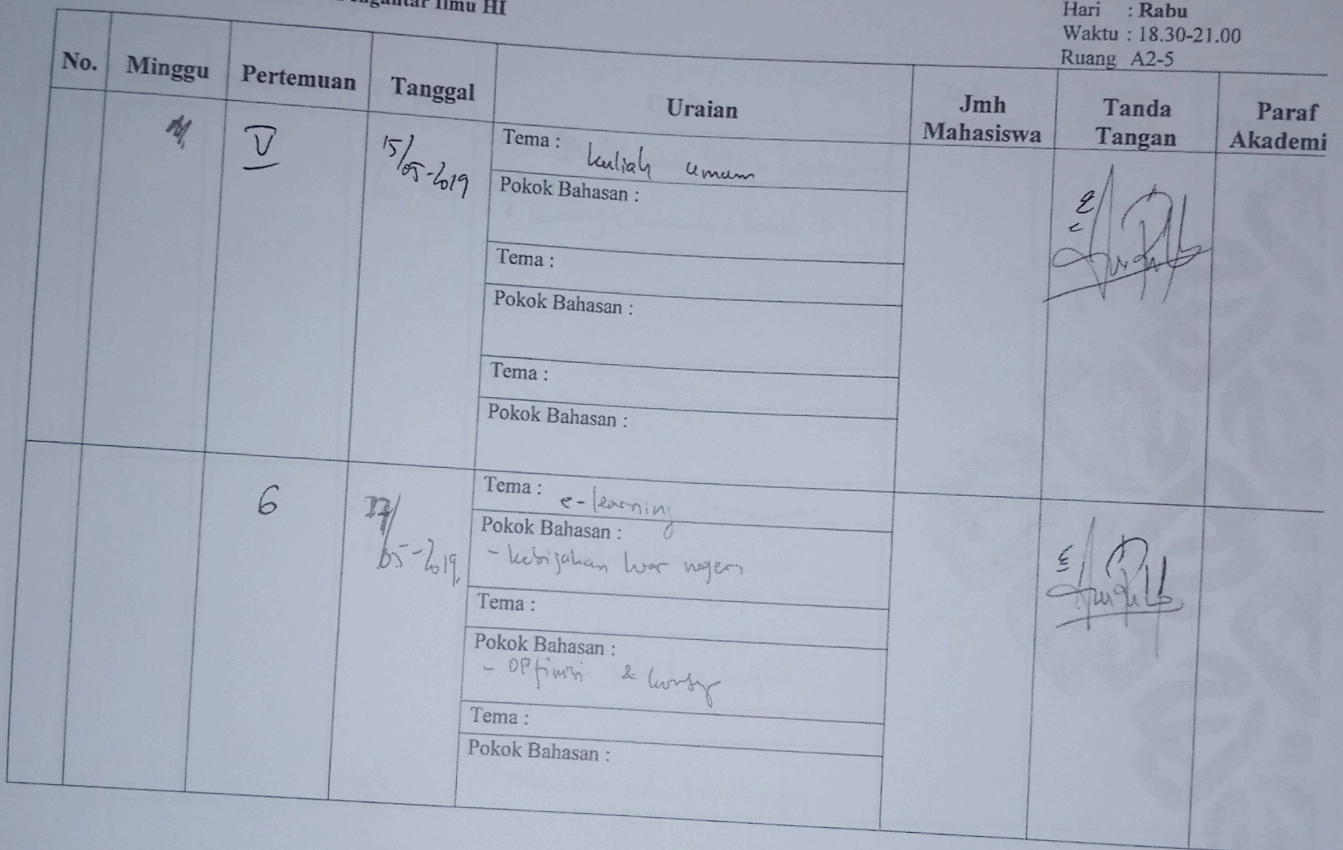 Ilmu HI
Hari : Rabu
Waktu : 18.30-21.00
Ruang A2-5
No. Minggu Pertemuan Tanggal Uraian Jmh Mahasiswa Tanda Tangan Paraf Akademi
V 15/05-2019
Tema : kuliah umum
Pokok Bahasan :
Tema :
Pokok Bahasan :
Tema :
Pokok Bahasan :
6 /05-2019
Tema : e-learning
Pokok Bahasan :
- kebijakan luar negeri
Tema :
Pokok Bahasan :
- &
Tema :
Pokok Bahasan :